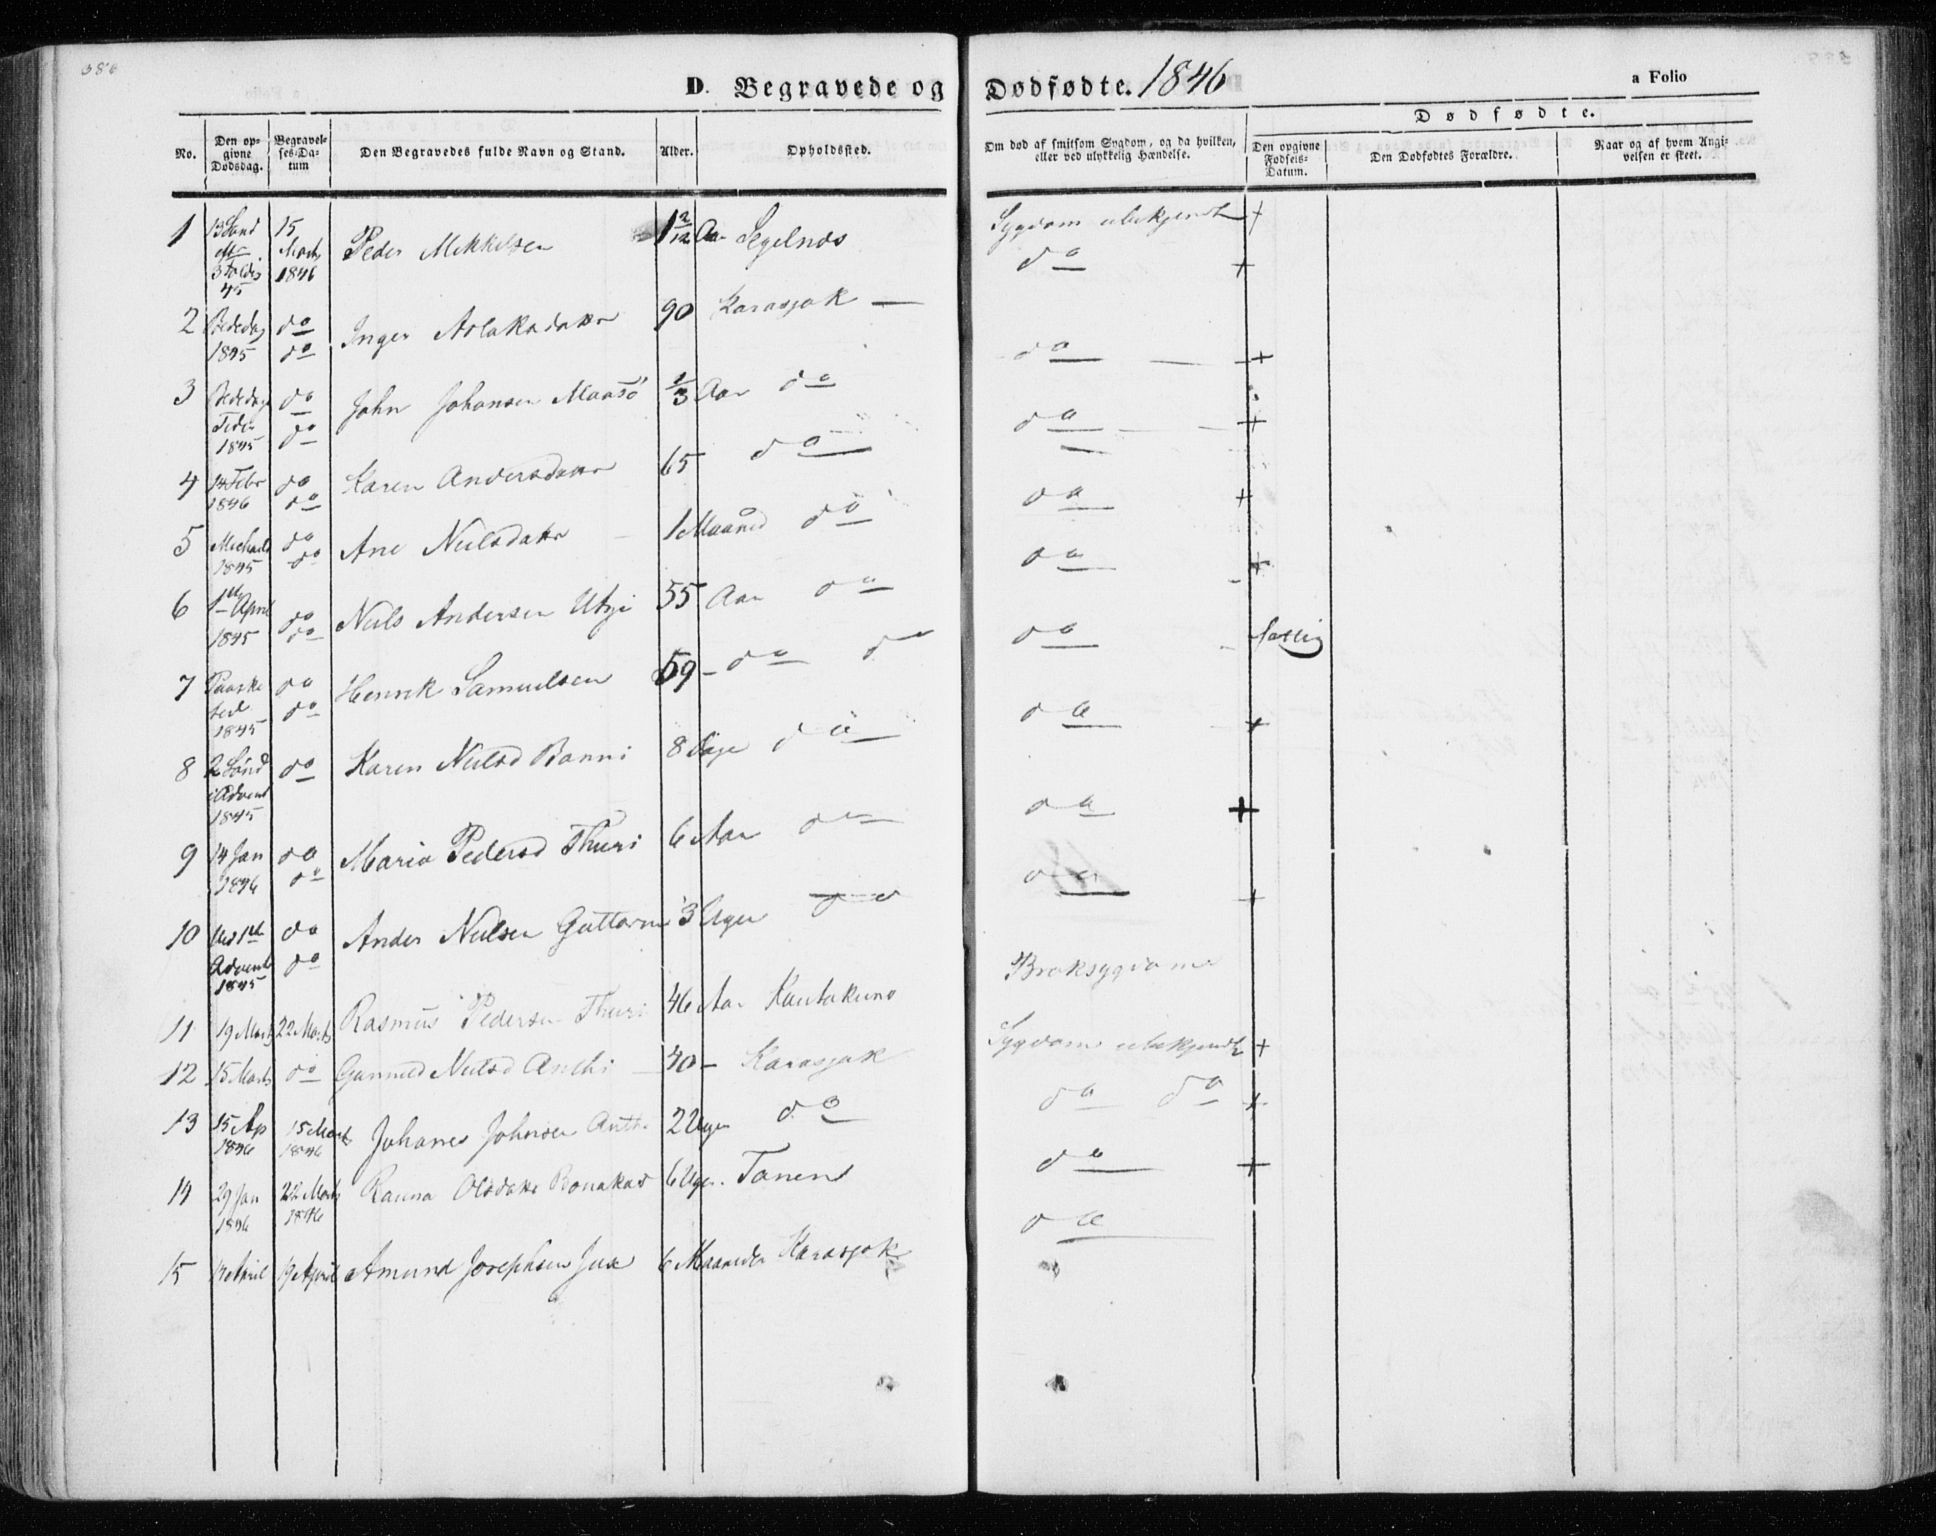 386
D. Begravede og Dødfødte. 1846
a Folio
No.
Den opgivne Dødsdag.
Begravelses-Datum
Den Begravedes fulde Navn og Stand.
Alder.
Opholdssted.
Om død af smitsom Sygdom, og da hvilken, eller ved ulykkelig Hændelse.
Dødfødte.
Den opgivne Fødsels-Datum.
Den Dødfødtes Forældre.
Naar og af hvem Angivelsen er skeet.
1 13 Sønd 45 15 Marts 1846 Peder Mikkelsen 1 2/12 Aar Segelnes Sygdom ubekjendt +
2 Bededag 1845 do do Inger Aslaksdatter 90 Karasjok — do +
3 Bededags Tider 1845 do do John Johansen Maasø 1/3 Aar do do +
4 14 Febr 1846 do do Karen Andersdatter 65 do do +
5 Michaeli 1845 do do Ane Neilsdatter 1 Maaned do do +
6 1ste April 1845 do do Neils Andersen Utzi 55 Aar do do +
7 Paaske tid 1845 do do Henrik Samuelsen 59 - do do do
8 2 Sønd i Advent 1845 do Karen Neilsd Banni 8 Dage do do +
9 14 Jan 1846 do do Maria Pedersd Thuri 6 Aar do do +
10 Ved 1ste Advent 1845 do do Anders Neilsen Guttorm 3 Uger do do +
11 19 Marts 22 Marts Rasmus Pedersen Thuri 46 Aar Kautokeino Broksygdom
12 15 Marts do Gunnild Neilsd Anthi 40 - Karasjok Sygdom ubekjendt +
13 15 Ap 1846 15 Marts 1846 Johanes Johnsen Anthi 2 Uger do do do +
14 29 Jan 1846 22 Marts 1846 Rauna Olsdatter Bonakas 6 Uger. Tanen do +
15 April 19 April Amund Josephsen Jux 6 Maaneder Karasjok do